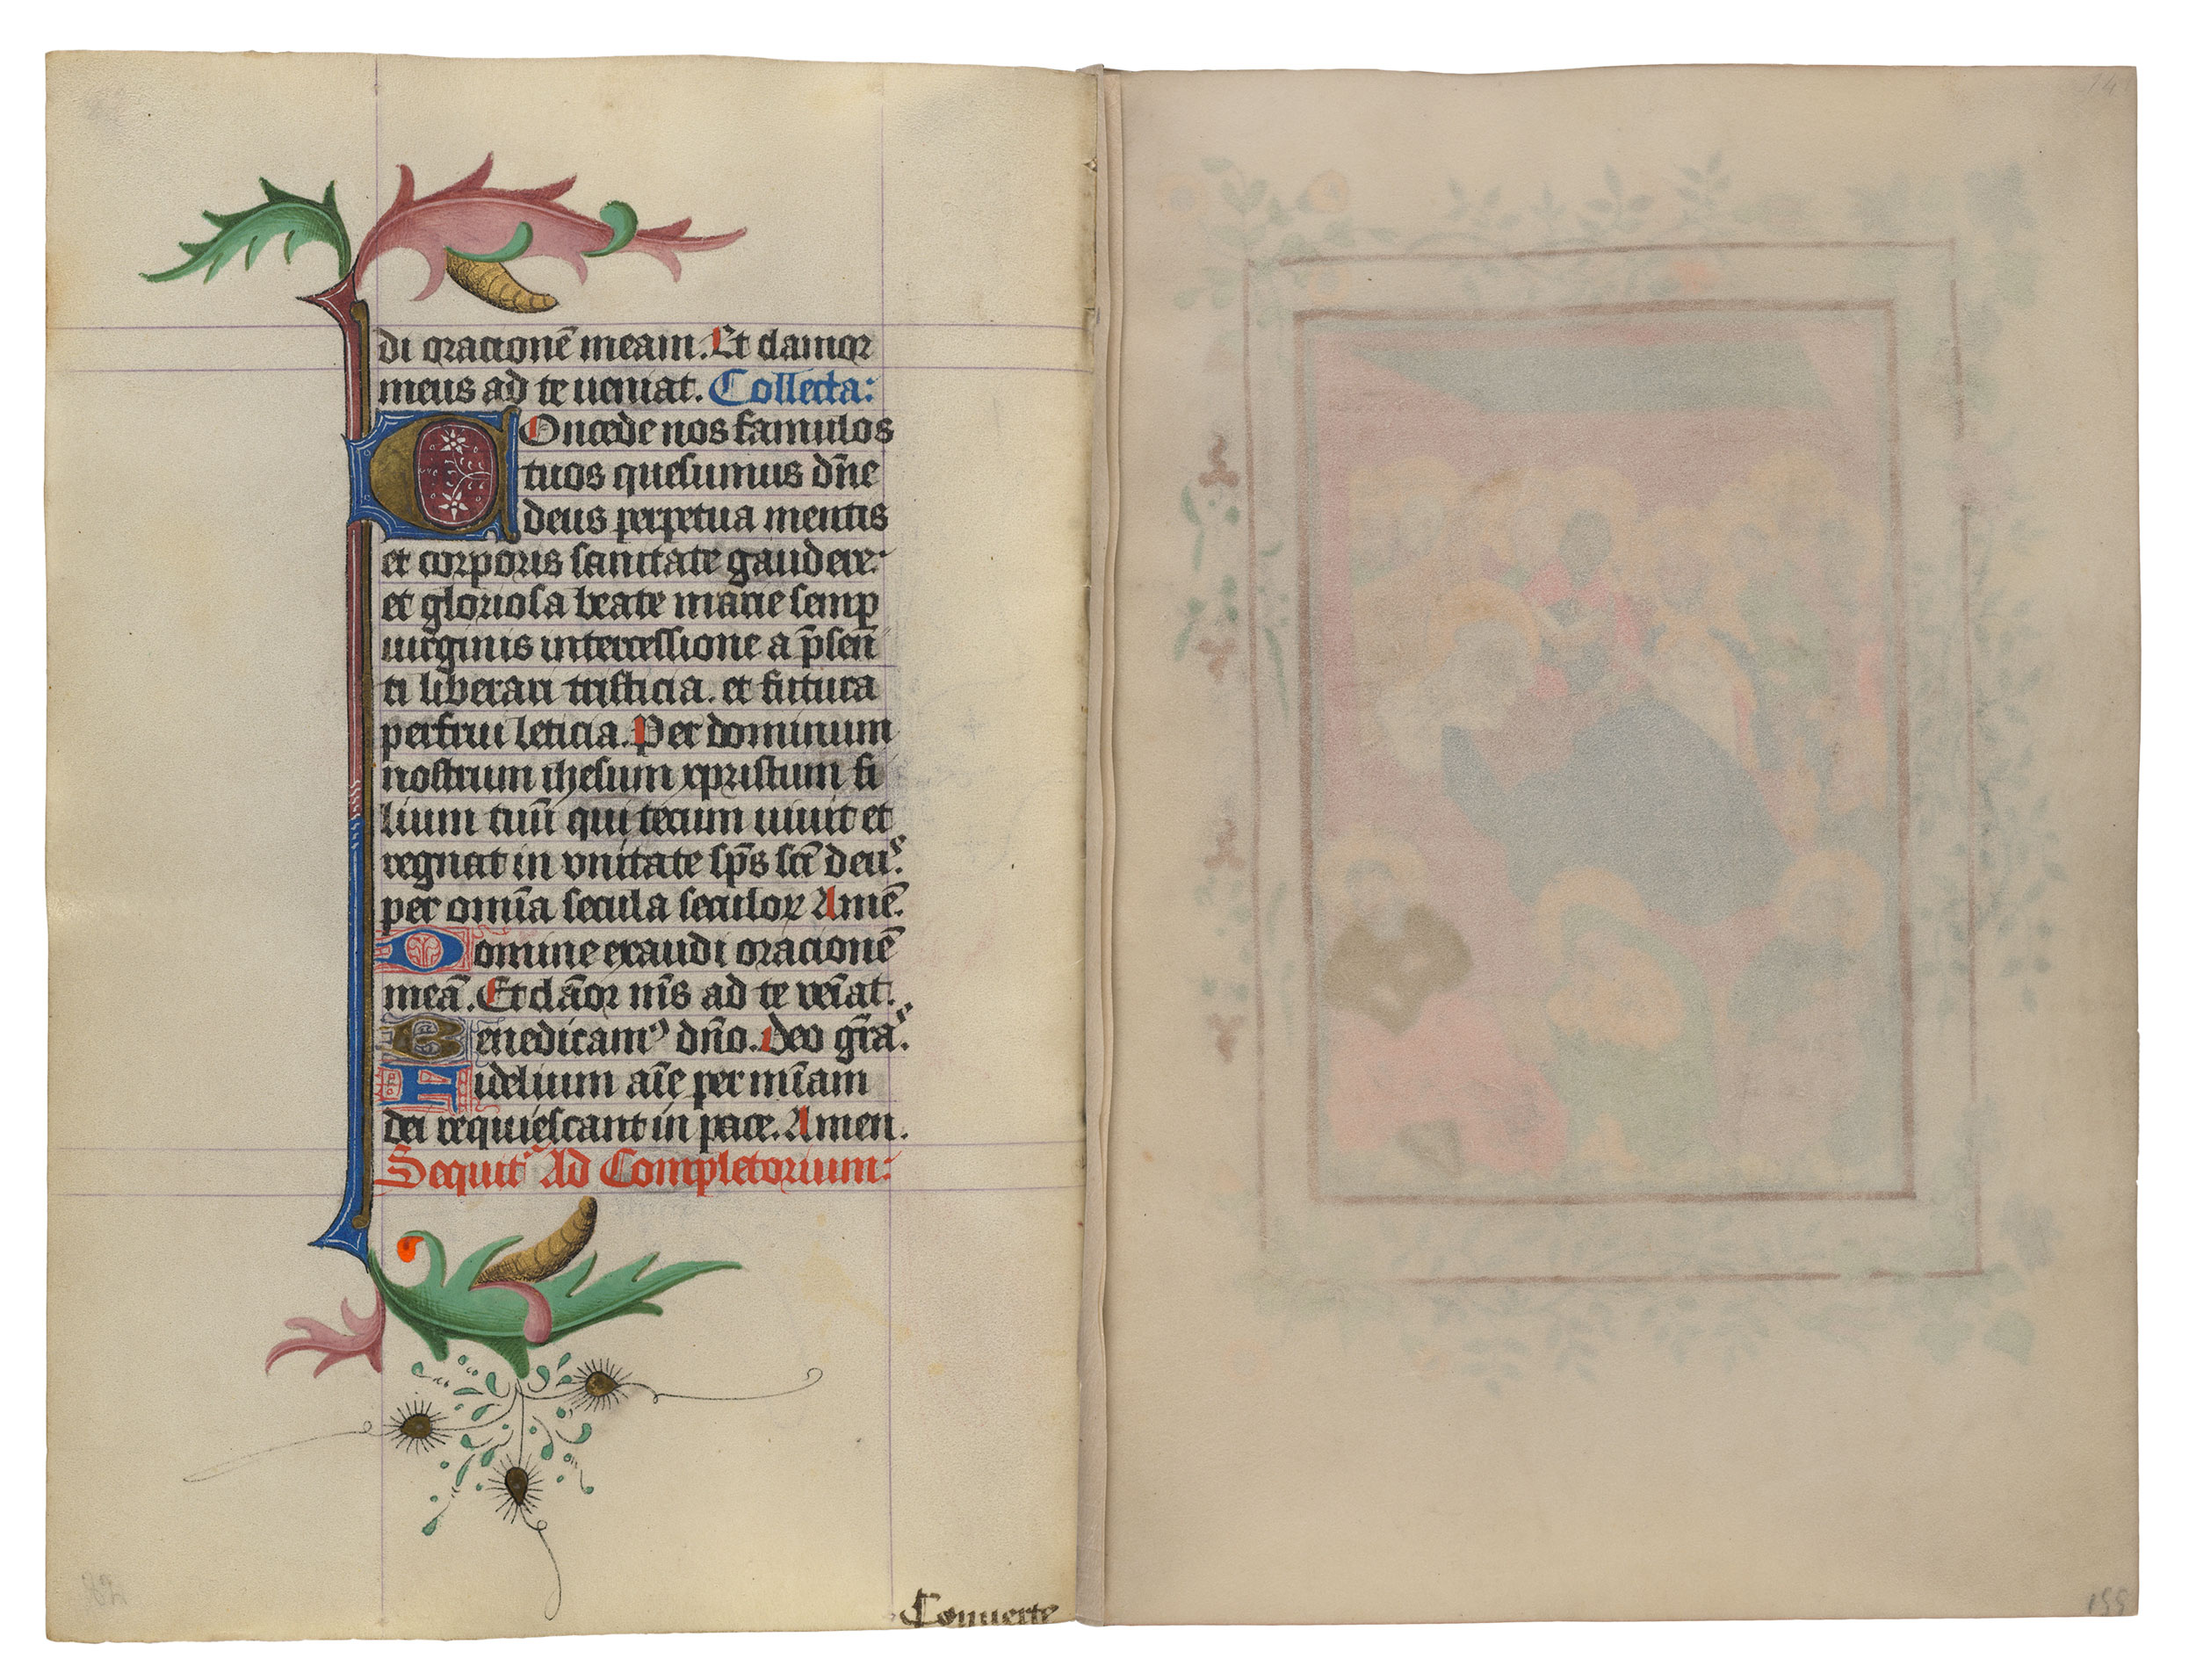 di oracionē meam. Et clamor
meus ad te ueniat. Collecta:
Concede nos famulos
tuos quesumus dn̄e
deus perpetua mentis
et corporis sanitate gaudere.
et gloriosa beate marie semꝑ
uirginis intercessione a p̄sen
ti liberari tristicia. et futura
perfrui leticia. Per dominum
nostrum ihesum xpristum fi
lium tuū qui tecum uiuit et
regnat in vnitate sp̄s sc̄i deus.
per om̄ia secula seculoꝝ Amē.
Domine exaudi oracionē
meā. Et clāor m̄s ad te vēiat.
Benedicamꝰ dn̄o. Deo gr̄as.
Fidelium aīe per mīam
dei requiescant in pace. Amen.
Sequitʳ Ad Completorium:
Conuerte
155